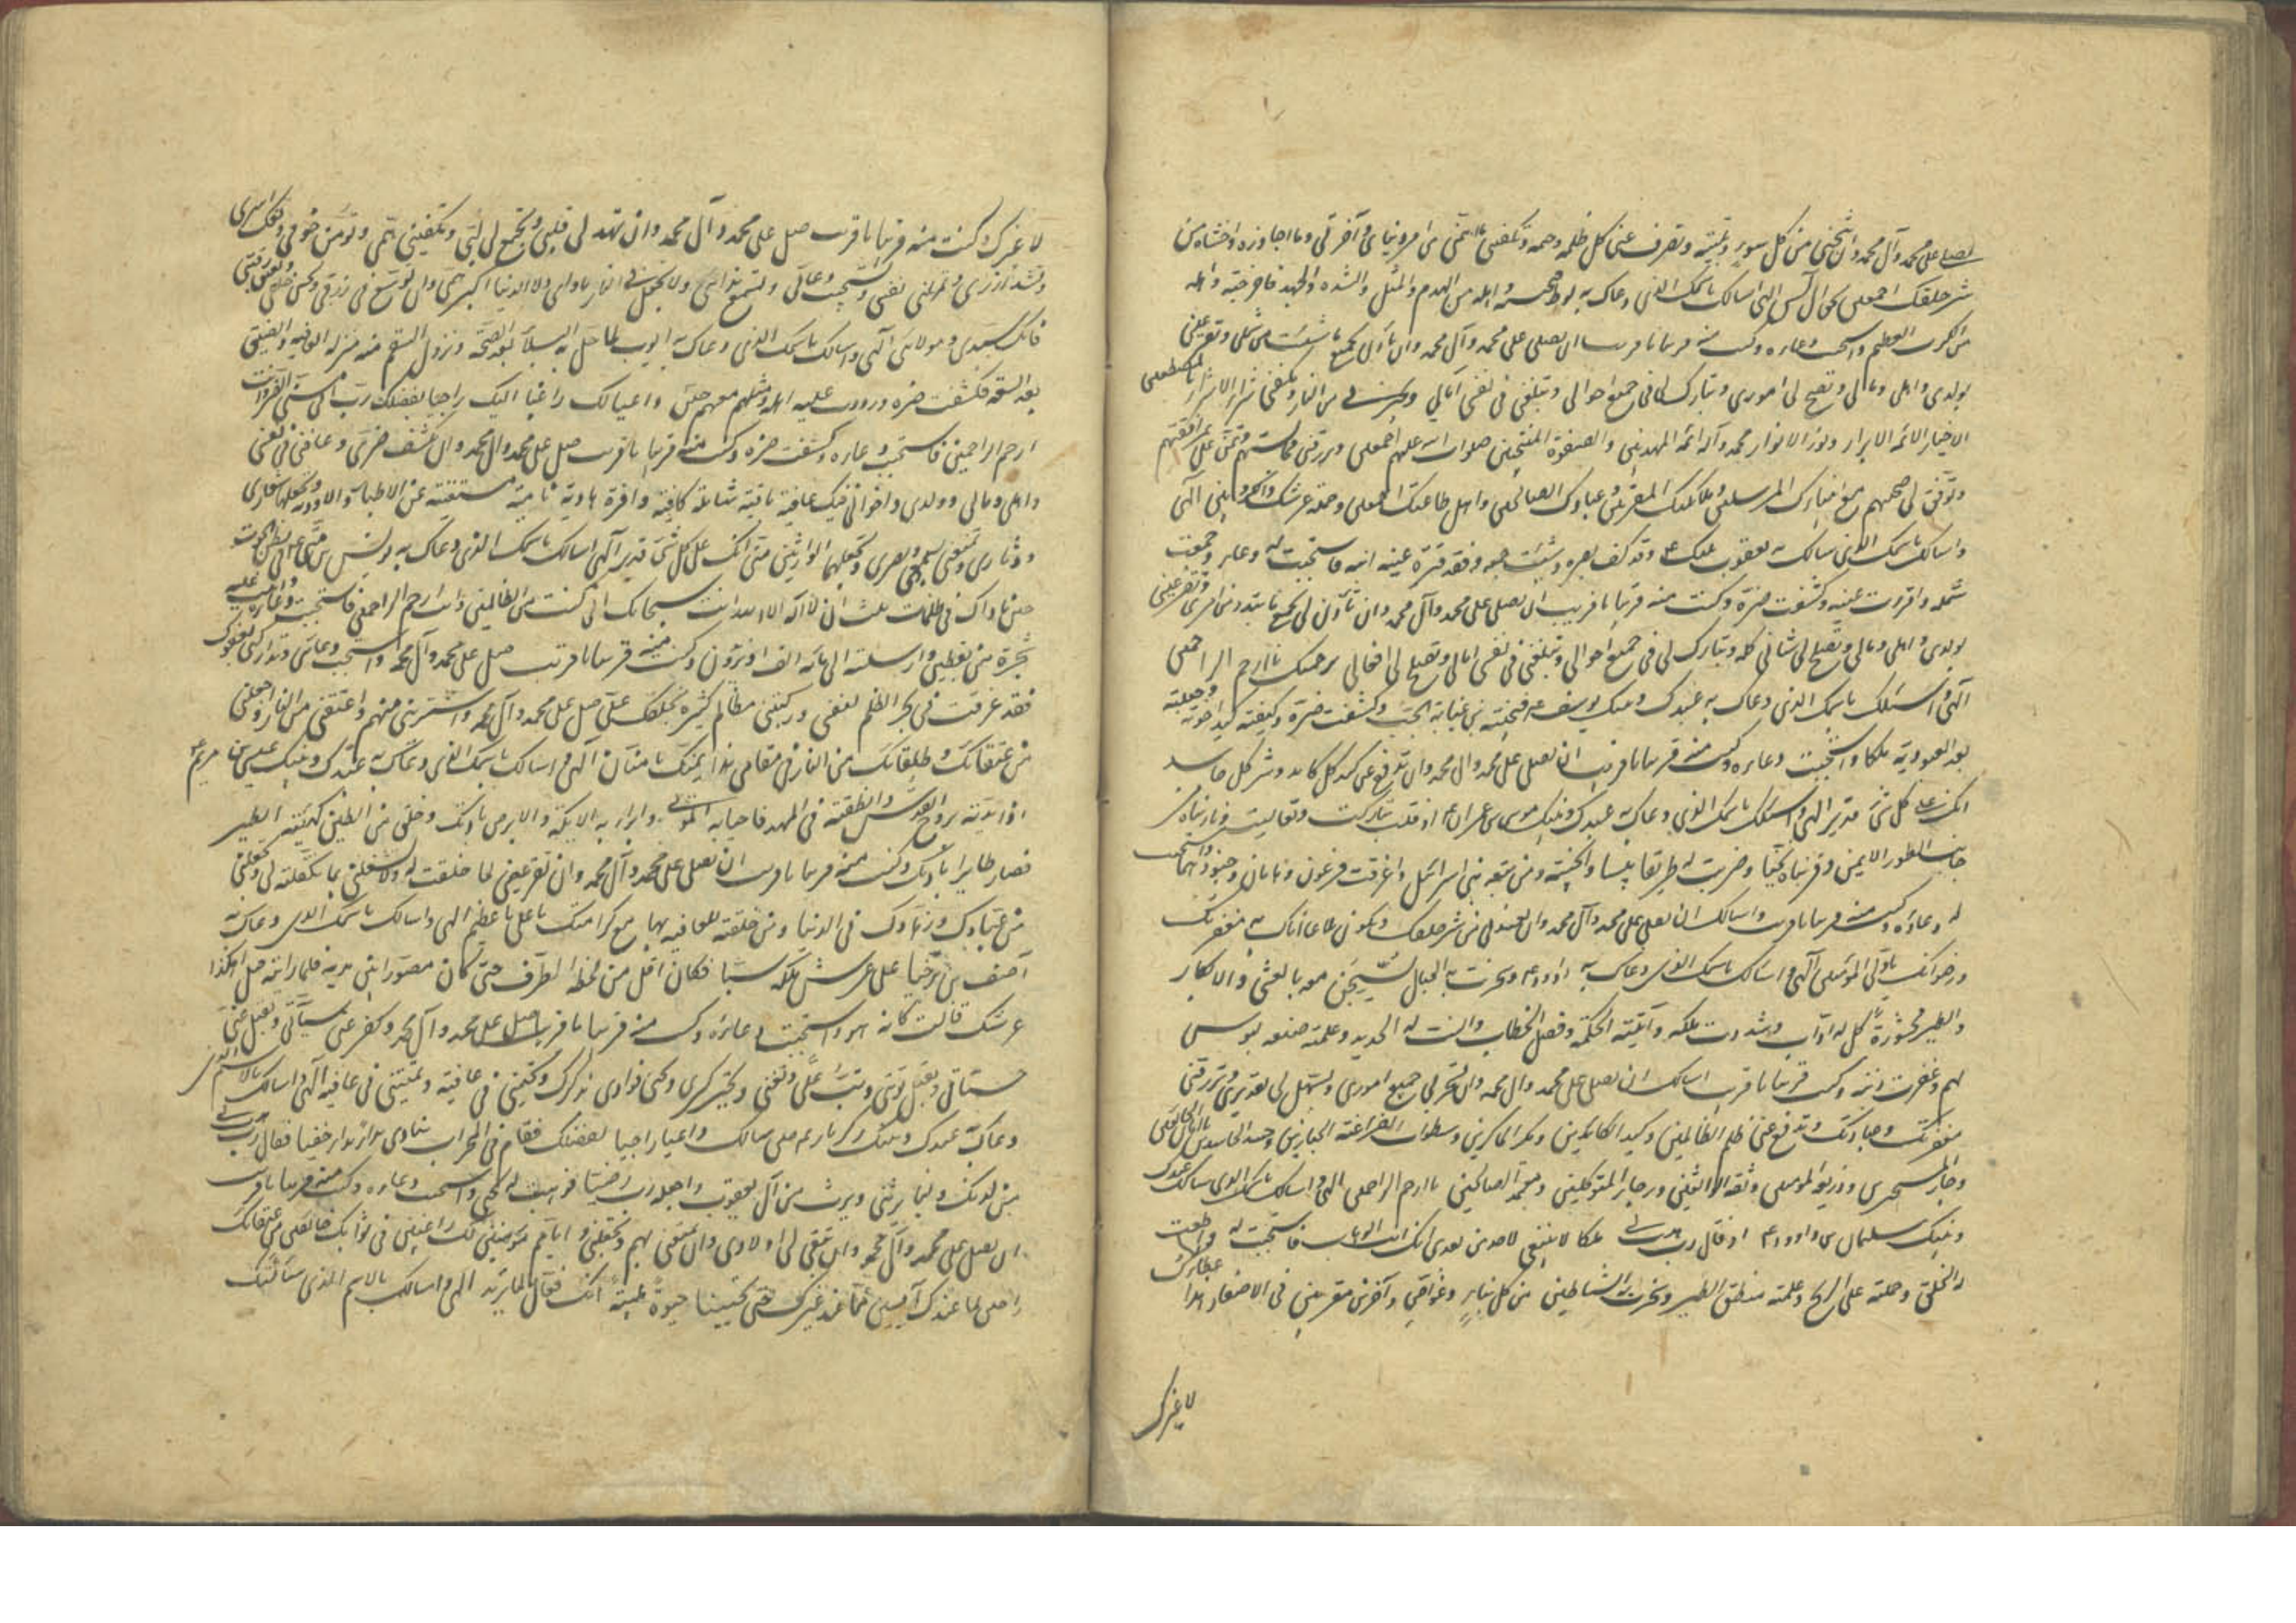 تصلی علی محمد وآل محمد وان تنجینی من کل سوء وبلیة وتصرف عنی کل ظلمة وتکفینی ما اهمنی من امر دنیای وآخرتی وما احاذره واخشاه من
شر خلقک اجمعین بحق آل یس الهی اسالک باسمک الذی دعاک به لوط واهله من الهدم والمثل والشدة والجهد فاخرجته واهله
من الکرب العظیم واستجبت دعاءه وکنت منه قریبا یا قریب ان تصلی علی محمد وآل محمد وان تأذن بجمیع ما شتت من شملی وتقر عینی
بولدی واهلی ومالی وتصلح لی اموری وتبارک لی فی جمیع احوالی وتبلغنی فی نفسی آمالی وتجیرنی من النار وتکفینی شر الاشرار بالمصطفین
الاخیار الائمة الابرار ونور الانوار محمد وآله ائمة المهدیین والصفوة المنتجبین صلوات الله علیهم اجمعین وترزقنی مجالستهم وتمن علی بمرافقتهم
وتوفق لی صحبتهم مع انبیائک المرسلین وملائکتک المقربین وعبادک الصالحین واهل طاعتک اجمعین وحملة عرشک والکروبیین الهی
واسالک باسمک الذی سالک به یعقوب نبیک ع وقد کف بصره وشتت جمعه وفقد قرة عینه ابنه فاستجبت له دعاءه وجمعت
شمله واقررت عینه وکشفت ضره وکنت منه قریبا یا قریب ان تصلی علی محمد وآل محمد وان تأذن لی بجمیع ما تبدد من امری وتقر عینی
بولدی واهلی ومالی وتصلح لی شانی کله وتبارک لی فی جمیع احوالی وتبلغنی فی نفسی آمالی وتصلح لی افعالی برحمتک یا ارحم الراحمین
الهی واسئلک باسمک الذی دعاک به عبدک ونبیک یوسف ع فنجیته من غیابة الجب وکشفت ضره وکفیته کید اخوته وجعلته
بعد العبودیة ملکا واستجبت دعاءه وکنت منه قریبا یا قریب ان تصلی علی محمد وآل محمد وان تدفع عنی کید کل کائد وشر کل حاسد
انک علی کل شیء قدیر الهی واسئلک باسمک الذی دعاک به عبدک ونبیک موسی بن عمران ع اذ قلت تبارکت وتعالیت ونادیناه من
جانب الطور الایمن وقربناه نجیا وضربت له طریقا یبسا وانجیته ومن تبعه بنی اسرائیل واغرقت فرعون وهامان وجنودهما واستجبت
له دعاءه وکنت منه قریبا یا قریب واسالک ان تصلی علی محمد وآل محمد وان من شر خلقک به مغفرتک
ورضوانک یا ولی المؤمنین الهی واسالک باسمک الذی دعاک به داود ع وسخرت له الجبال یسبحن معه بالعشی والابکار
والطیر محشورة کل له اواب وشددت ملکه وآتیته الحکمة وفصل الخطاب والنت له الحدید وعلمته صنعة لبوس
لهم وغفرت ذنبه وکنت منه قریبا یا قریب اسالک ان تصلی علی محمد وآل محمد وان تسخر لی جمیع اموری وتسهل لی تقدیری وترزقنی
مغفرتک وعبادتک وتدفع عنی ظلم الظالمین وکید الکایدین ومکر الماکرین وسطوات الفراعنة الجبارین وحسد الحاسدین یا امان الخائفین
وجار المستجیرین وذریعة المؤمنین وثقة الواثقین ورجاء المتوکلین ومعتمد الصالحین یا ارحم الراحمین الهی واسالک باسمک الذی سالک عبدک
ونبیک سلیمان بن داود ع اذ قال رب هب لی ملکا لا ینبغی لاحد من بعدی انک انت الوهاب فاستجبت له واطعت
له الخلق وحملته علی الریح وعلمته منطق الطیر وسخرت له الشیاطین من کل بناء وغواص وآخرین مقرنین فی الاصفاد هذا عطاؤک
لا غیرک
لا غیرک وکنت منه قریبا یا قریب صل علی محمد وآل محمد وان تهدی لی قلبی وتجمع لی لبی وتکفینی همی وتؤمن خوفی وتفک اسری
وتشد ازری وتمهلنی وتنفسنی وتستجیب دعائی وتسمع ندائی ولا تجعل فی النار مأوای ولا الدنیا اکبر همی وان توسع فی رزقی وتحسن خلقی وتعتق رقبتی
فانک سیدی ومولای الهی واسالک باسمک الذی دعاک به ایوب لما حل به البلاء بعد الصحة ونزول السقم منه منزلة العافیة والضیق
بعد السعة فکشفت ضره ورددت علیه اهله ومثلهم معهم حین داعیا لک راغبا الیک راجیا لفضلک رب انی مسنی الضر وانت
ارحم الراحمین فاستجبت دعاءه وکشفت ضره وکنت منه قریبا یا قریب صل علی محمد وآل محمد وان تکشف ضری وعافنی فی نفسی
واهلی ومالی وولدی واخوانی فیک عافیة باقیة شافیة کافیة وافرة هادیة نامیة مستغنیة عن الاطباء والادویة وتجعلها شعاری
ودثاری وتمتعنی بسمعی وبصری وتجعلهما الوارثین منی انک علی کل شیء قدیر الهی اسالک باسمک الذی دعاک به یونس بن متی فی بطن الحوت
حین ناداک فی ظلمات ثلث ان لا اله الا انت سبحانک انی کنت من الظالمین وانت ارحم الراحمین فاستجبت دعاءه وانبت علیه
شجرة من یقطین وارسلته الی مائة الف او یزیدون وکنت منه قریبا یا قریب صل علی محمد وآل محمد واستجب دعائی وتدارکنی بعفوک
فقد غرقت فی بحر الظلم لنفسی ورکبتنی مظالم کثیرة لخلقک علی صل علی محمد وآل محمد واسترنی منهم واعتقنی من النار واجعلنی
من عتقائک وطلقائک من النار فی مقامی هذا بمنک یا منان الهی واسالک باسمک الذی دعاک به عبدک ونبیک عیسی بن مریم ع
اذ ایدته بروح القدس وانطقته فی المهد فاحیا به الموتی وابرا به الاکمه والابرص باذنک وخلق من الطین کهیئة الطیر
فصار طایرا باذنک وکنت منه قریبا یا قریب ان تصلی علی محمد وآل محمد وان تفرغنی لما خلقت له ولا تشغلنی بما تکفلته لی وتجعلنی
من عبادک وزهادک فی الدنیا ومن خلقته للعافیة بها مع کرامتک یا علی یا عظیم الهی واسالک باسمک الذی دعاک به
آصف بن برخیا علی عرش ملکة سبا فکان اقل من لحظة الطرف حتی کان مصورا بین یدیه فلما راته قیل اهکذا
عرشک قالت کانه هو واستجبت دعاءه وکنت منه قریبا یا قریب صل علی محمد وآل محمد وکفر عنی سیئاتی وتقبل منی
حسناتی وتقبل توبتی وتب علی وتجبر کسری وتحیی فؤادی بذکرک وتحیینی فی عافیة وتمیتنی فی عافیة الهی واسالک بالاسم الذی
دعاک به عبدک ونبیک زکریا ع حین سالک داعیا راجیا لفضلک فقام فی المحراب ینادی نداء خفیا فقال رب هب لی
من لدنک ولیا یرثنی ویرث من آل یعقوب واجعله رب رضیا فوهبت له یحیی واستجبت دعاءه وکنت منه قریبا یا قریب
ان تصلی علی محمد وآل محمد وان تبقی لی اولادی وان تمتعنی بهم وتجعلنی وایاهم مؤمنین لک راغبین فی ثوابک خائفین من عقابک
راجین لما عندک آیسین مما عند غیرک حتی تحیینا حیوة طیبة انک فعال لما یرید الهی واسالک بالاسم الذی سالتک